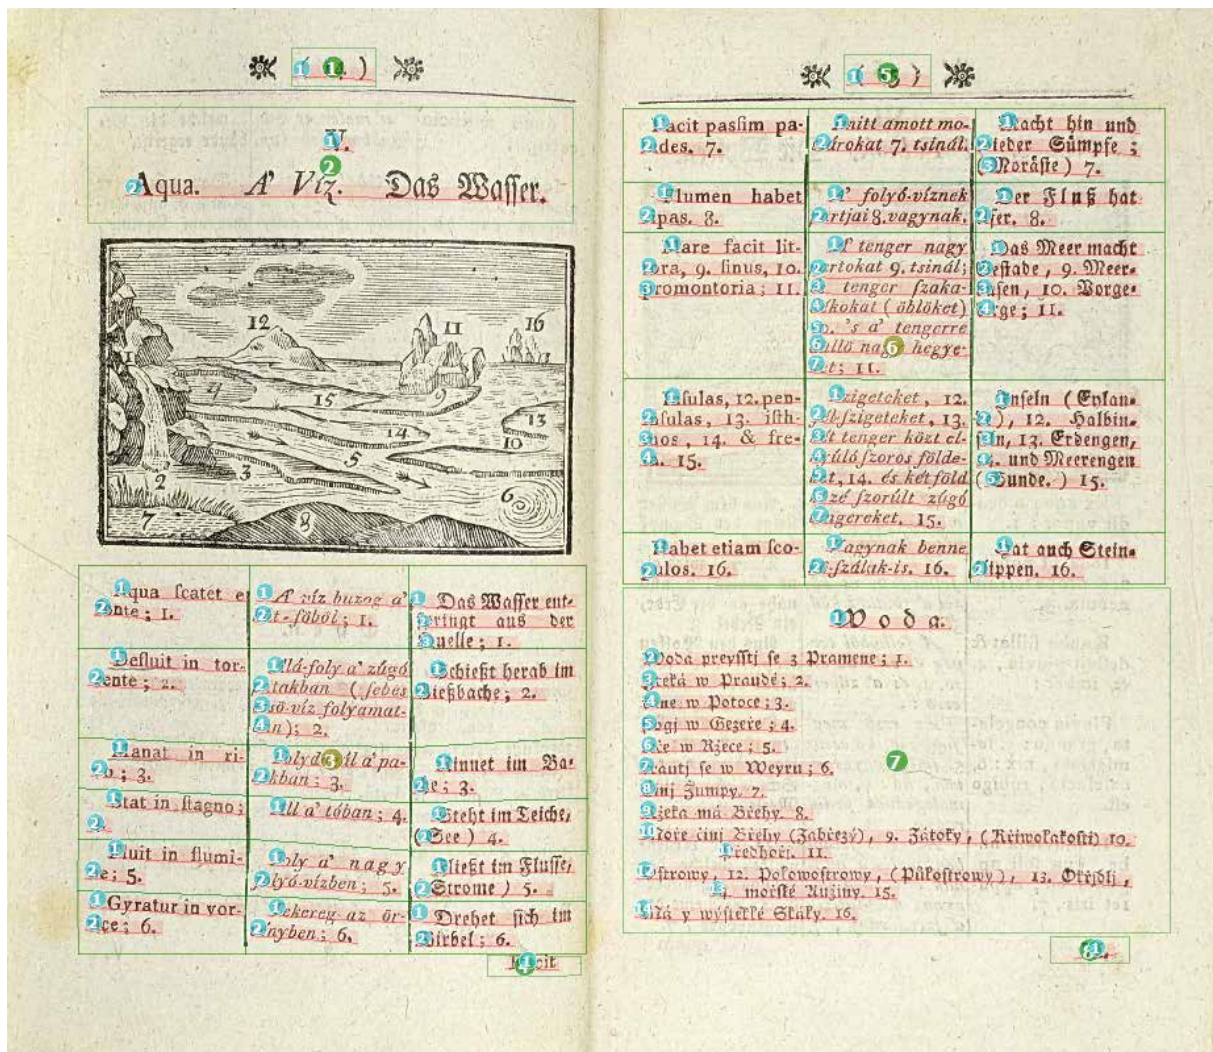 V.
Aqua. A' Víz. Das Waſſer.
12 11 16
1 4 15 9 13
14 10
5
2 3 6
7 8
Aqua ſcatet e
fonte; 1.
A' víz buzog a'
kút-föböl; 1.
Das Waſſer ent-
ſpringt aus der
Quelle; 1.
Defluit in tor-
rente; 2.
Alá-foly a' zúgó
patakban (ſebes
eső-víz folyamat-
ban); 2.
Schießt herab im
Gießbache; 2.
Manat in ri-
vo; 3.
a' pa-
takban; 3.
Rinnet im Ba-
che; 3.
Stat in ſtagno;
4.
Áll a' tóban; 4.
Steht im Teiche,
(See) 4.
Fluit in flumi-
ne; 5.
Foly a' nagy
folyó-vízben; 5.
Fließt im Fluſſe,
(Strome) 5.
Gyratur in vor-
tice; 6.
Tekereg az ör-
vényben; 6.
Drehet ſich im
Wirbel; 6.
Facit
Facit paſſim pa-
ludes. 7.
Imitt amott mo-
tsárokat 7. tsinál.
Macht hin und
wieder Sümpfe;
(Moräſte) 7.
Flumen habet
ripas. 8.
A' folyó-víznek
partjai 8. vagynak.
Der Fluß hat
Ufer. 8.
Mare facit lit-
tora, 9. ſinus, 10.
promontoria; 11.
A' tenger nagy
partokat 9. tsinál;
tenger ſzaka-
dékokat (öblöket)
10. 's a' tengerre
nagy hegye-
ket; 11.
Das Meer macht
Geſtade, 9. Meer-
buſen, 10. Vorge-
birge; 11.
Inſulas, 12. pen-
inſulas, 13. iſth-
mos, 14. & fre-
ta. 15.
Szigeteket, 12.
fél-ſzigeteket, 13.
két tenger közt el-
nyúló ſzoros földe-
ket, 14. és két föld
közé ſzorúlt zúgó
tengereket. 15.
Inſeln (Eylan-
de), 12. Halbin-
ſeln, 13. Erdengen,
14. und Meerengen
(Sunde.) 15.
Habet etiam ſco-
pulos. 16.
Vagynak benne
kö-ſzálak-is. 16.
Hat auch Stein-
klippen. 16.
Woda.
Woda preyſſtj ſe z Pramene; 1.
Steká w Praudė; 2.
w Potoce; 3.
Stogj w Gezeře; 4.
Teče w Ržece; 5.
ſe w Weyru; 6.
Činj Žumpy. 7.
Ržeka má Břehy. 8.
Moře činj Břehy (Zabřezý), 9. Zátoky, (Křiwolakoſti) 10.
Předhořj. 11.
Oſtrowy, 12. Polowoſtrowy, (Půloſtrowy), 13. Okřſſlj,
14. mořſké Aužiny. 15.
Má y wyſteklé Skály. 16.